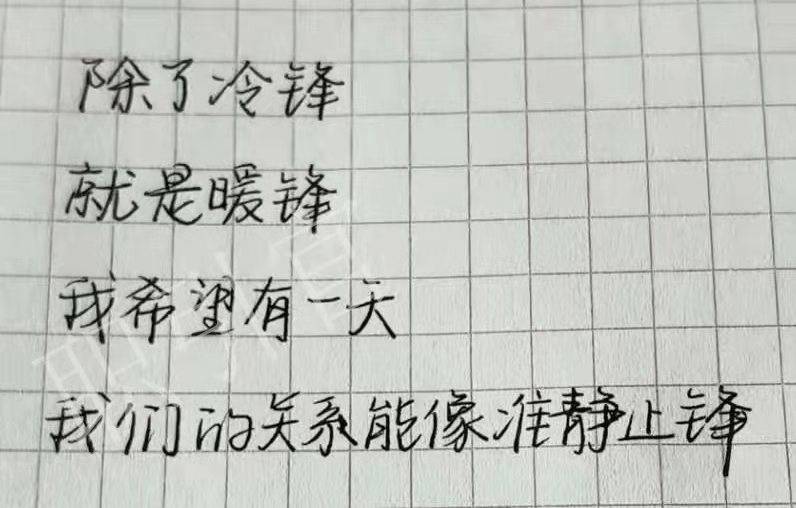 除了冷锋
就是暖锋
我希望有一天
我们的关系能像准静止锋